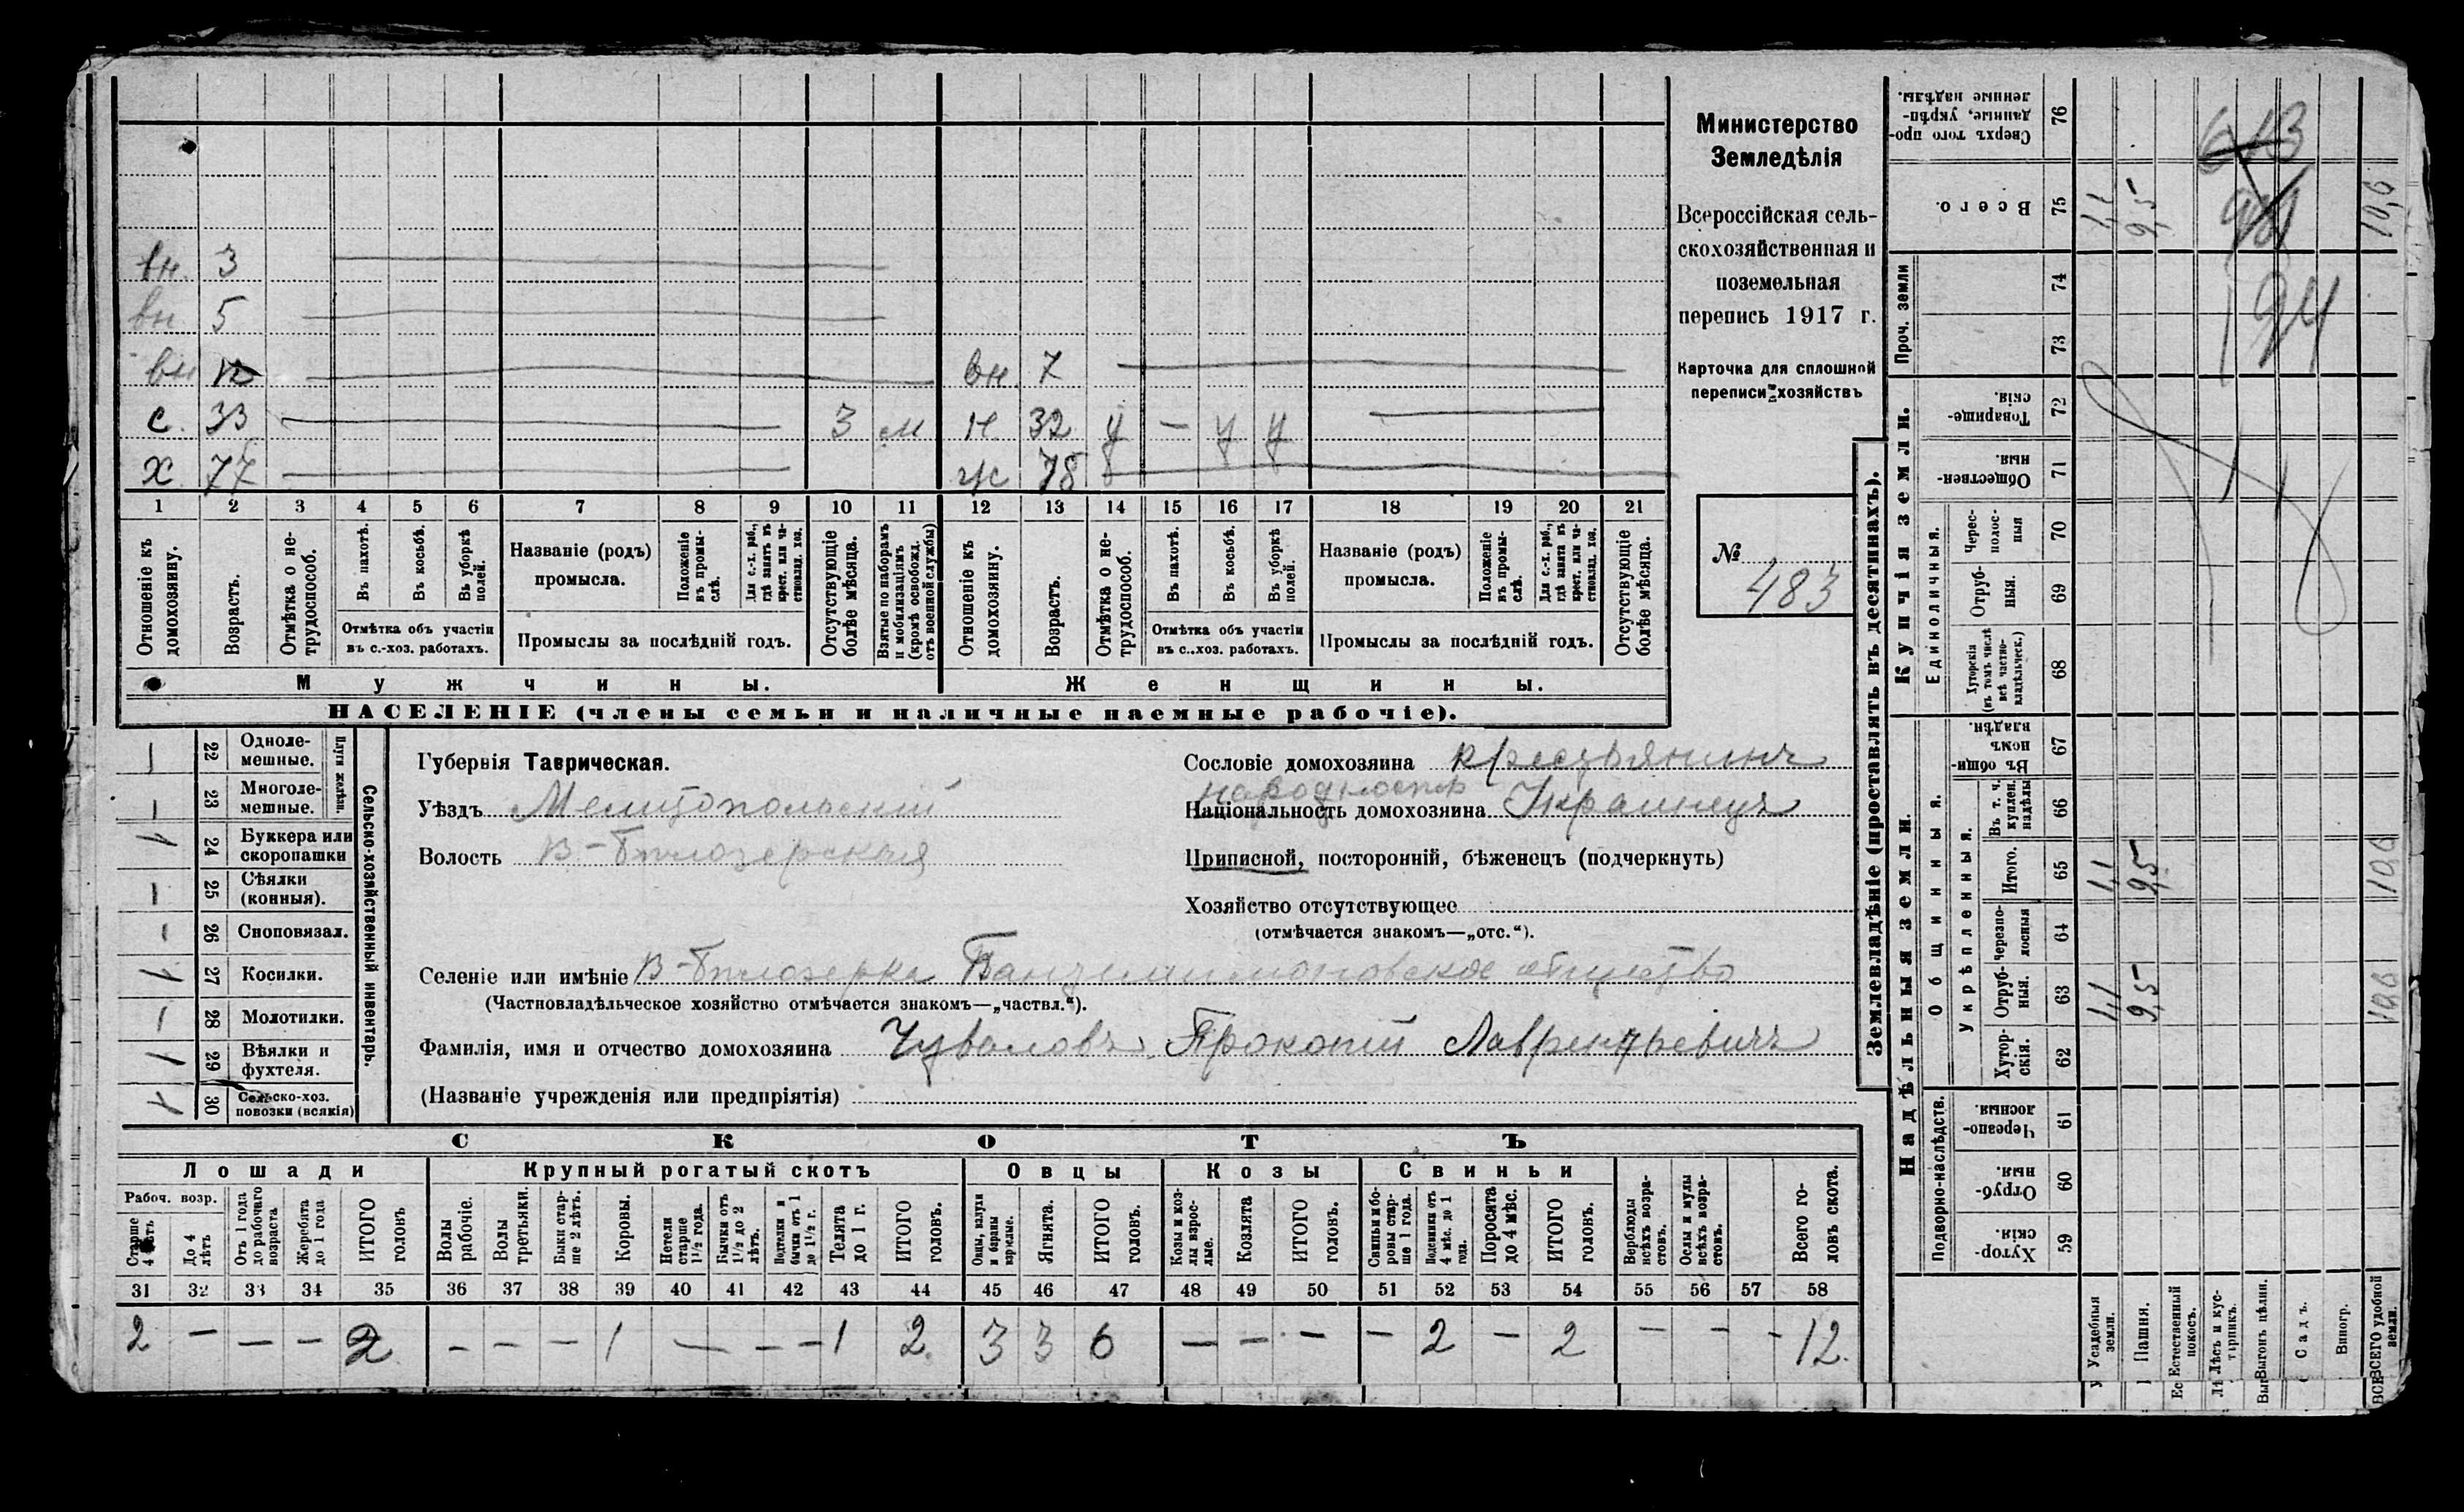 Министерство
Земледѣлія
Всероссійская сель-
скохозяйственная и
поземельная
перепись 1917 г.
Карточка для сплошной
переписи хозяйствъ
№
483
вн. 3
вн. 5
вн
вн. 7
с. 33 3 м н 32 у — у у
х 77 ж 78
1 2 3 4 5 6 7 8 9 10 11 12 13 14 15 16 17 18 19 20 21
Отношеніе къ домохозяину.
Возрастъ.
Отмѣтка о не-трудоспособ.
Въ пахотѣ.
Въ косьбѣ.
Въ уборкѣ полей.
Отмѣтка объ участіи
въ с.-хоз. работахъ.
Названіе (родъ)
промысла.
Положеніе въ промы-слѣ.
Для с.-х. раб., гдѣ занятъ въ крест. или ча-стновлад. хоз.
Промыслы за послѣдній годъ.
Отсутствующіе болѣе мѣсяца.
Взятые по наборамъ и мобилизаціямъ (кромѣ освобожд. отъ военной службы)
Отношеніе къ домохозяину.
Возрастъ.
Отмѣтка о не-трудоспособ.
Въ пахотѣ.
Въ косьбѣ.
Въ уборкѣ полей.
Отмѣтка объ участіи
въ с..хоз. работахъ.
Названіе (родъ)
промысла.
Положеніе въ промы-слѣ.
Для с.-х. раб., гдѣ занята въ крест. или ча-стновлад. хоз.
Промыслы за послѣдній годъ.
Отсутствующіе болѣе мѣсяца.
Мужчины.
Женщины.
НАСЕЛЕНІЕ (члены семьи и наличные наемные рабочіе).
Сельско-хозяйственный инвентарь.
Плуги желѣзн.
— 22 Одноле-мешные.
— 23 Многоле-мешные.
1 24 Буккера или скоропашки
— 25 Сѣялки (конныя).
— 26 Сноповязал.
1 27 Косилки.
— 28 Молотилки.
1 29 Вѣялки и фухтеля.
1 30 Сельско-хоз. повозки (всякія)
Губернія Таврическая.
Уѣздъ Мелитопольскій
Волость В-Бѣлозерская
Сословіе домохозяина крестьянинъ
народность
Національность домохозяина Украинецъ
Приписной, посторонній, бѣженецъ (подчеркнуть)
Хозяйство отсутствующее
(отмѣчается знакомъ—„отс.“).
Селеніе или имѣніе В-Бѣлозерка общество
(Частновладѣльческое хозяйство отмѣчается знакомъ—„частвл.“).
Фамилія, имя и отчество домохозяина Чуваловъ Прокопій Лаврентьевичъ
(Названіе учрежденія или предпріятія)
СКОТЪ
Лошади
Крупный рогатый скотъ
Овцы
Козы
Свиньи
Рабоч. возр.
Старше 4 лѣтъ
До 4 лѣтъ
Отъ 1 года до рабочаго возраста
Жеребята до 1 года
ИТОГО головъ
Волы рабочіе.
Волы третьяки.
Быки стар-ше 2 лѣтъ.
Коровы.
Нетели старше 1½ года.
Бычки отъ 1½ до 2 лѣтъ.
Подтелки и бычки отъ 1 до 1½ г.
Телята до 1 г.
ИТОГО головъ.
Овцы, валухи и бараны взрослые.
Ягнята.
ИТОГО головъ.
Козы и коз-лы взрос-лые.
Козлята
ИТОГО головъ.
Свиньи и бо-ровы стар-ше 1 года.
Подсвинки отъ 4 мѣс. до 1 года.
Поросята до 4 мѣс.
ИТОГО головъ.
Верблюды всѣхъ возра-стовъ.
Ослы и мулы всѣхъ возра-стовъ.
Всего го-ловъ скота.
31 32 33 34 35 36 37 38 39 40 41 42 43 44 45 46 47 48 49 50 51 52 53 54 55 56 57 58
2 — — — 2 — — — 1 — — — 1 2 3 3 6 — — — — 2 — 2 — — — 12.
Землевладѣніе (проставлять въ десятинахъ).
Сверхъ того про-данные, укрѣп-ленные надѣлы. 76
Всего. 75 1,1 9,5 10,6
Проч. земли
74
73
194
Купчія земли.
Товарище-скія. 72
Обществен-ныя. 71
Единоличныя.
Черес-полос-ныя 70
Отруб-ныя. 69
Хуторскія (въ томъ числѣ всѣ частно-владѣльческ.) 68
Надѣльныя земли.
Общинныя.
Въ общин-номъ владѣн. 67
Укрѣпленныя.
Въ т. ч. куплен. надѣлы 66
Итого. 65 1,1 9,5 10,6
Черезпо-лосныя 64
Отруб-ныя. 63 1,1 9,5 10,6
Хутор-скія. 62
Подворно-наслѣдств.
Черезпо-лосныя 61
Отруб-ныя. 60
Хутор-скія 59
Усадебныя земли.
Пашня.
Естественный покосъ.
Лѣсъ и кус-тарникъ.
Выгонъ цѣлин.
Садъ.
Виногр.
ВСЕГО удобной земли.